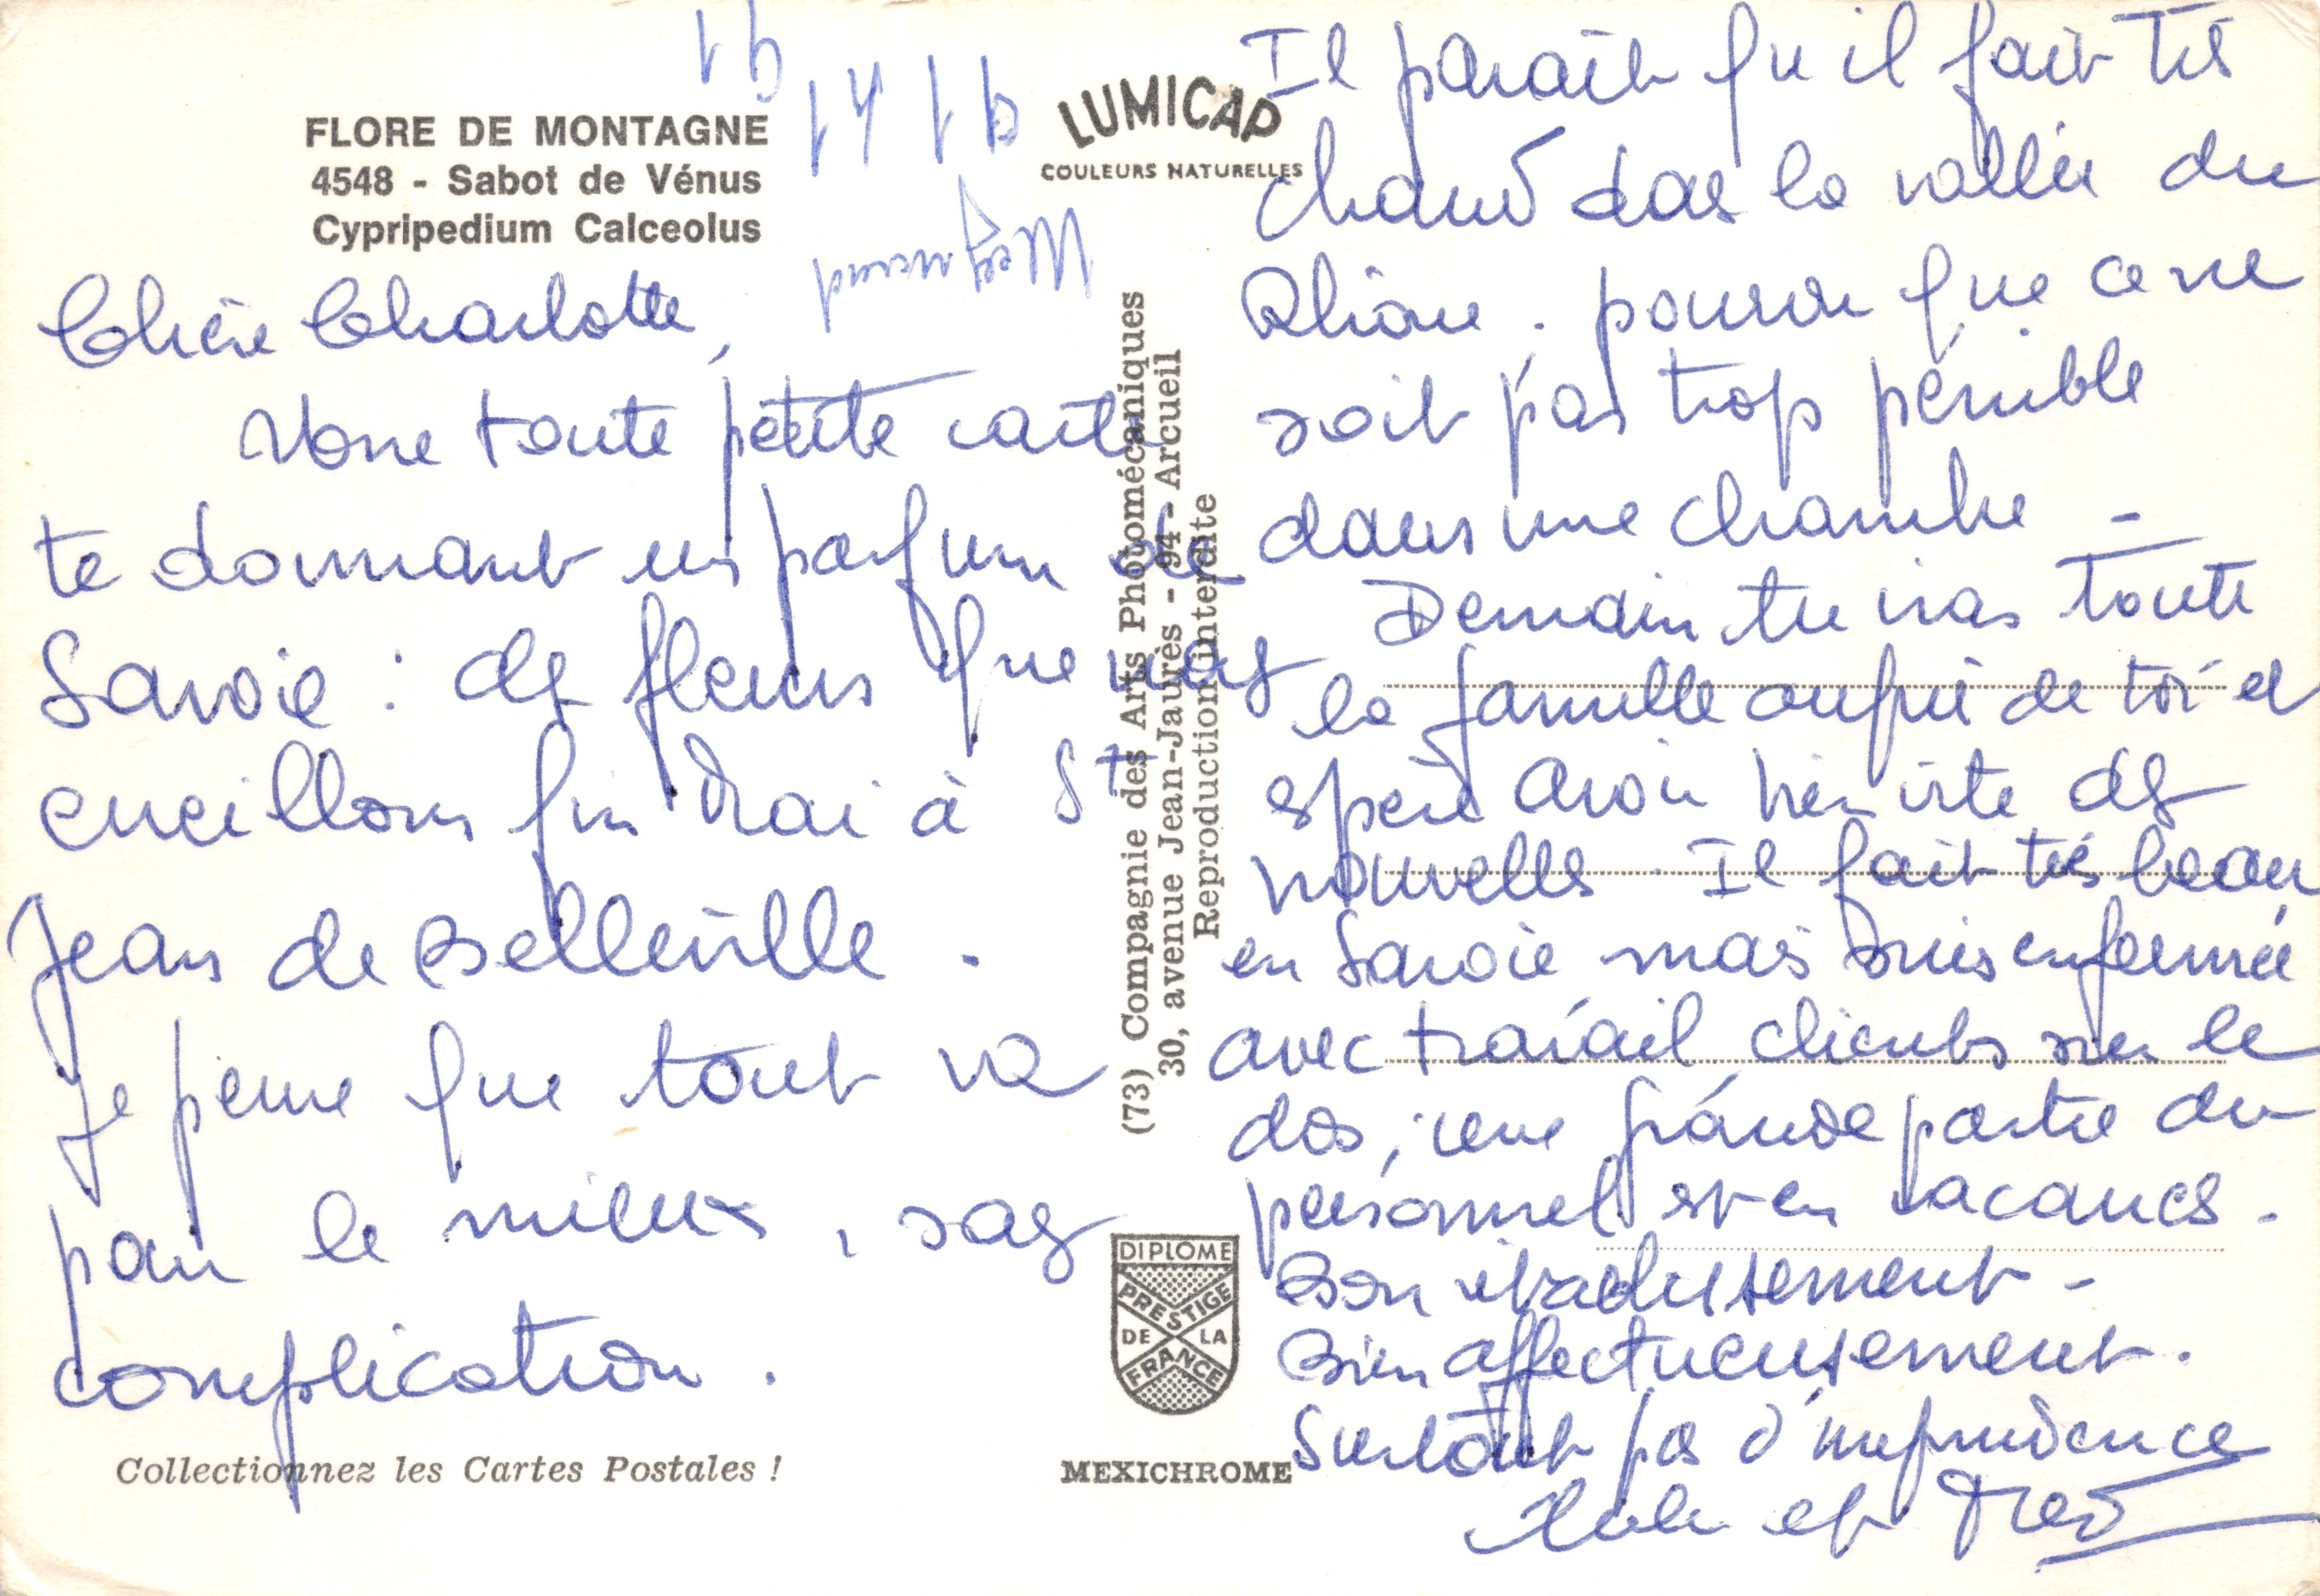 FLORE DE MONTAGNE
4548 - Sabot de Vénus
Cypripedium Calceolus
LUMICAP
COULEURS NATURELLES
Chère Charlotte,
toute petite carte
te donnant un parfum de
Savoie : des fleurs que nous
cueillons fin Mai à St
Jean de Belleville.
Je pense que tout va
pour le mieux, sans
complication.
Collectionnez les Cartes Postales !
(73) Compagnie des Arts Photomécaniques
30, avenue Jean-Jaurès - 94 - Arcueil
Reproduction interdite
DIPLOME
PRESTIGE
DE LA
FRANCE
MEXICHROME
Il paraît qu'il fait très
chaud dans la vallée du
Rhône. pourvu que ce ne
soit pas trop pénible
dans une chambre -
Demain tu iras toute
la famille auprès de toi et
espère avoir bien vite des
nouvelles. Il fait très beau
en Savoie mais suis enfermée
avec travail clients sur le
dos, une grande partie du
personnel est en vacances.
Bon rétablissement -
Bien affectueusement.
Surtout pas d'imprudence
et